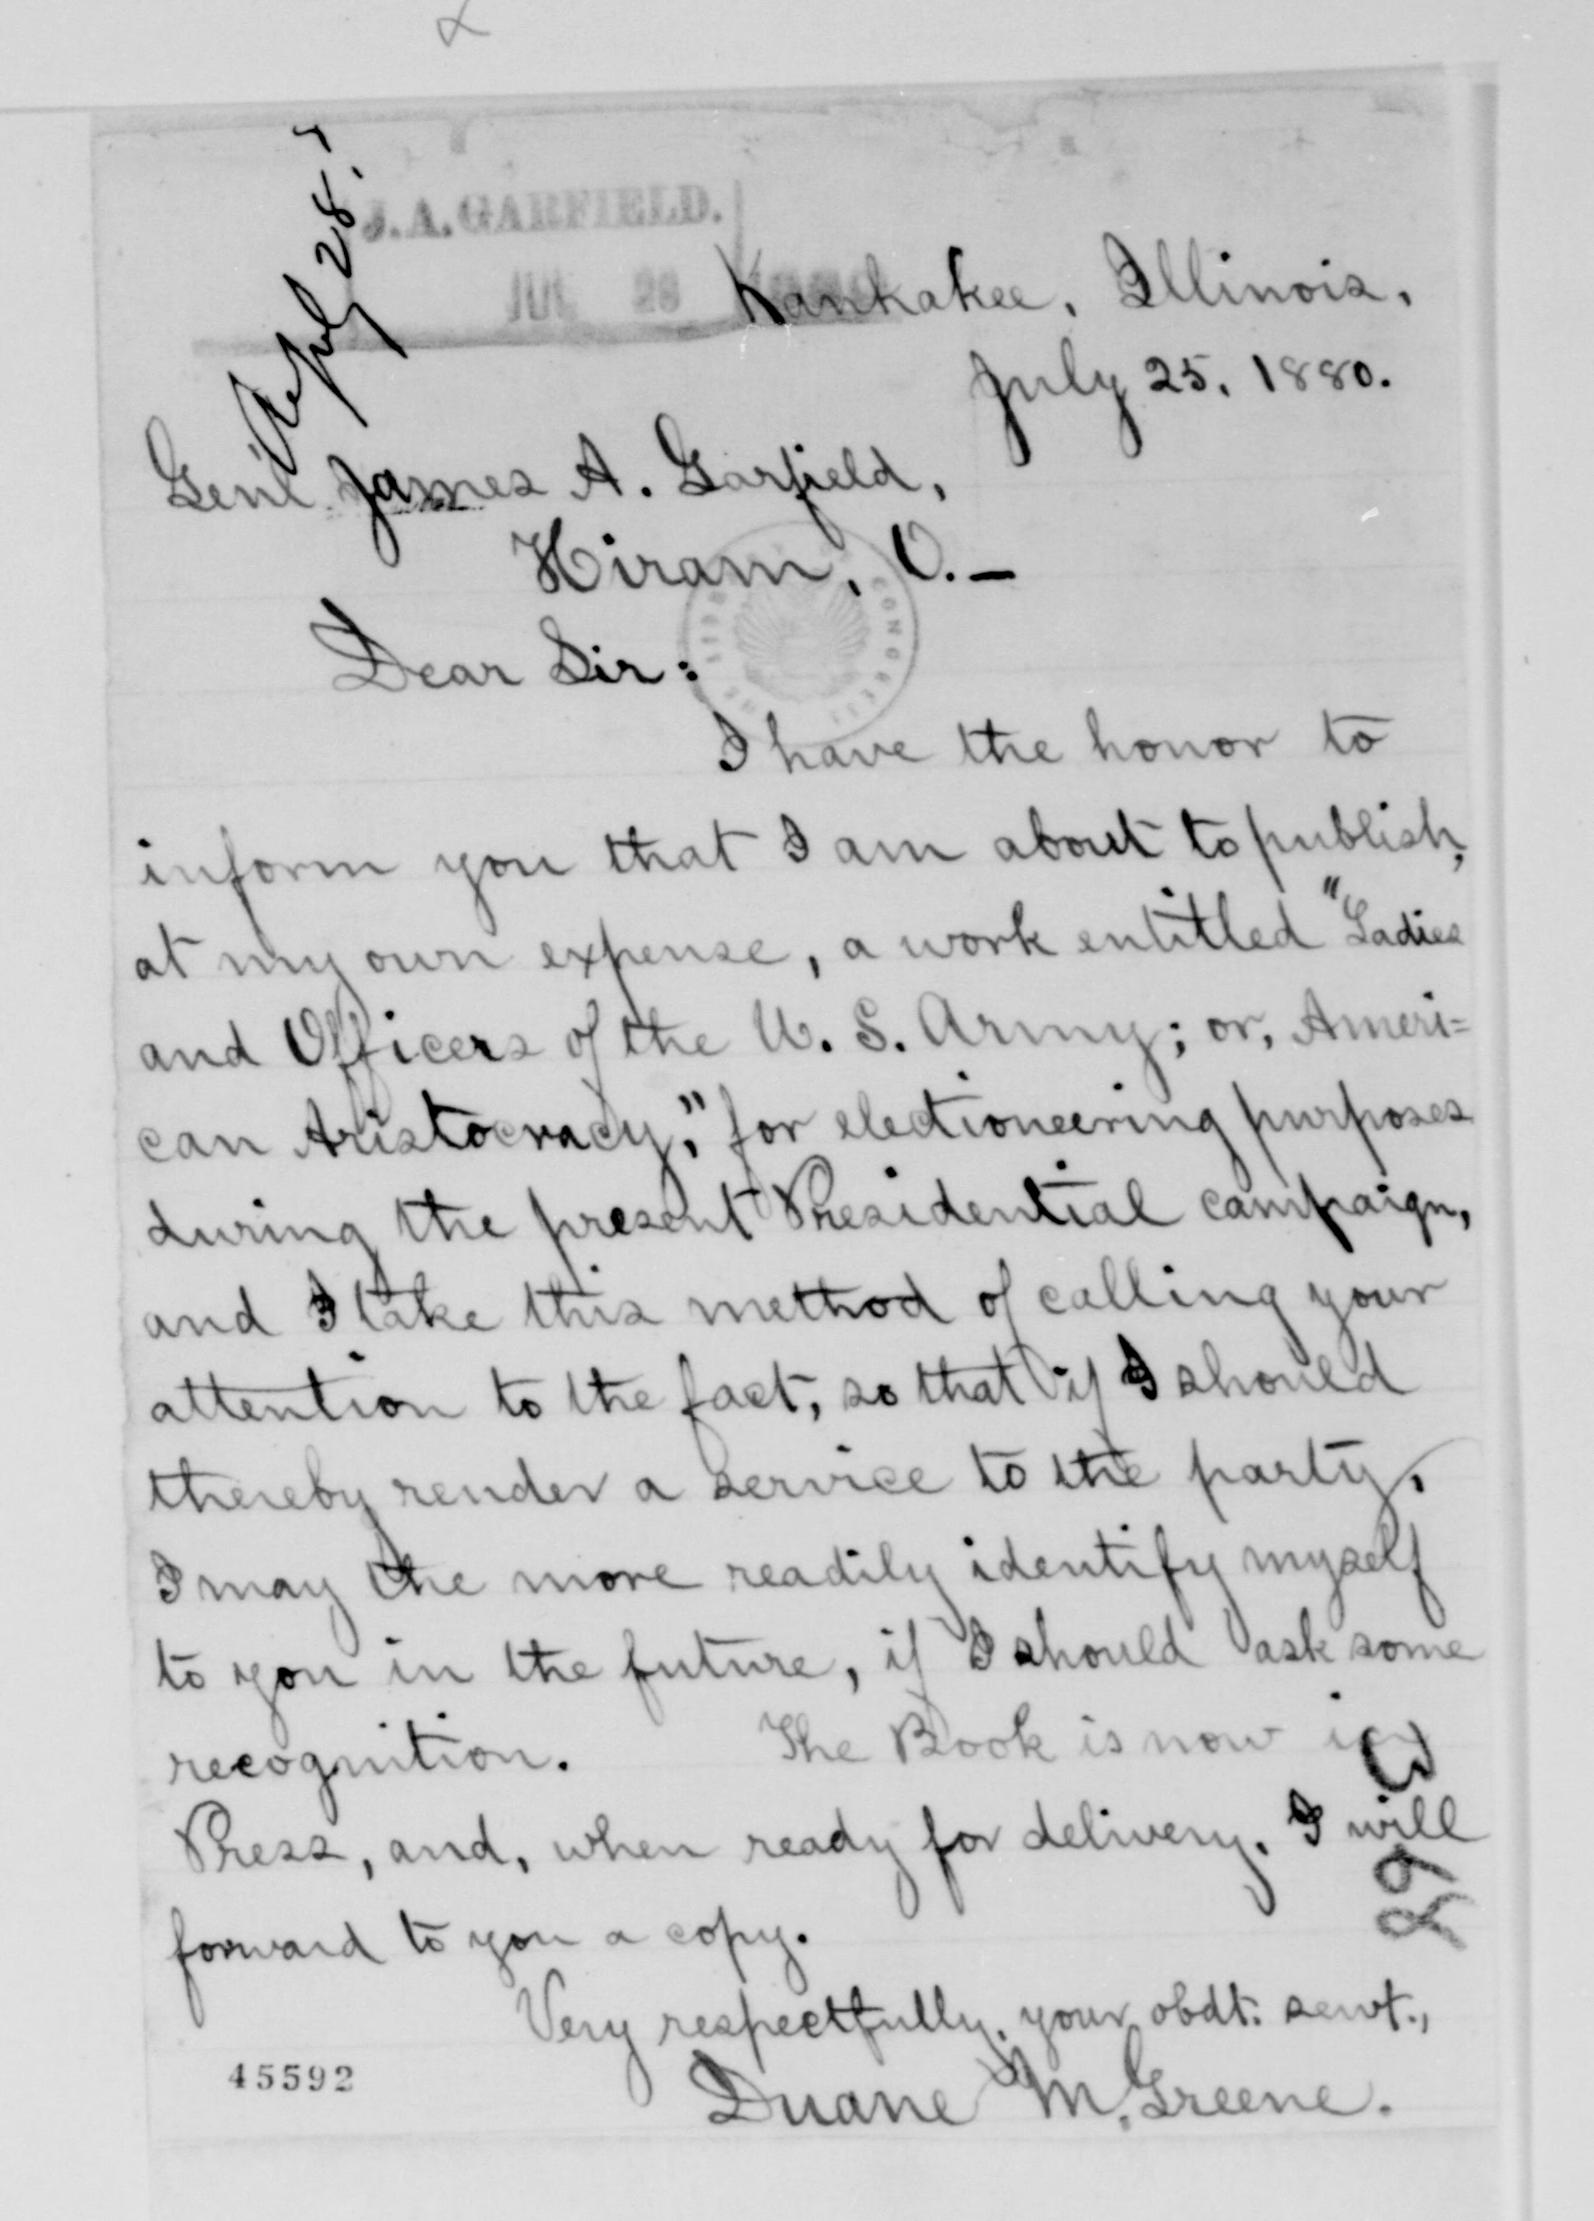 J. A. GARFIELD.
JUL 28 1880
Reply 28.
Kankakee, Illinois,
July 25, 1880.
Gen'l James A. Garfield,
Hiram, O. —
Dear Sir:
I have the honor to
inform you that I am about to publish,
at my own expense, a work entitled "Ladies
and Officers of the U. S. Army; or, Ameri=
can Aristocracy," for electioneering purposes
during the present Presidential campaign,
and I take this method of calling your
attention to the fact, so that if I should
thereby render a service to the party,
I may the more readily identify myself
to you in the future, if I should ask some
recognition. The Book is now in
Press, and, when ready for delivery, I will
forward to you a copy.
Very respectfully, your obdt. servt.,
Duane M. Greene.
45592